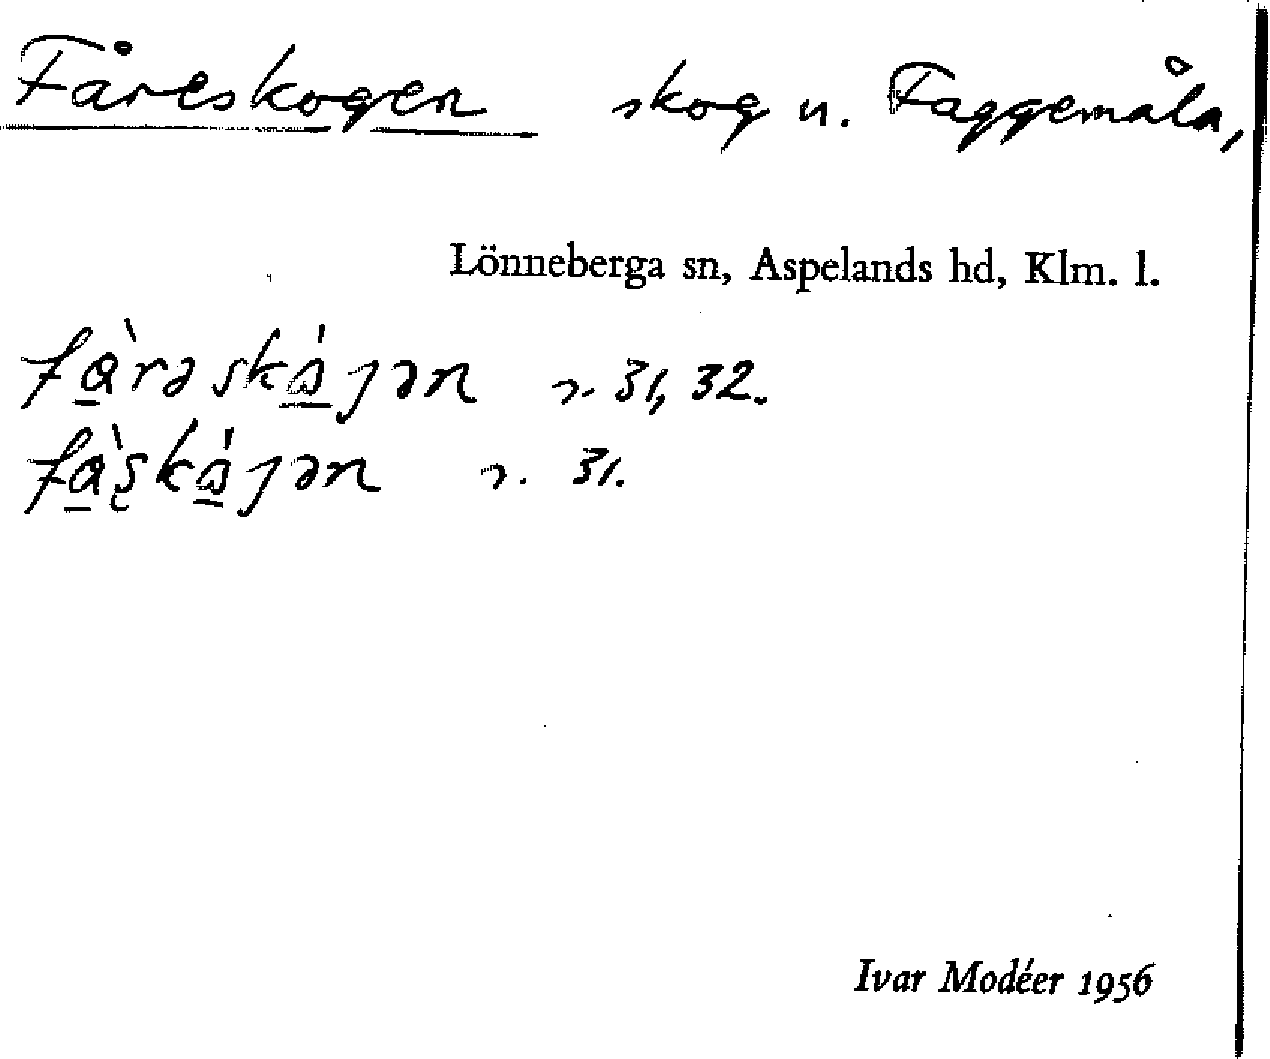 Fåreskogen skog u. Faggemåla,
Lönneberga sn, Aspelands hd, Klm. l.
fà̲rəská̲ȷən r. 31, 32.
fà̲ʂká̲ȷən r. 31.
Ivar Modéer 1956